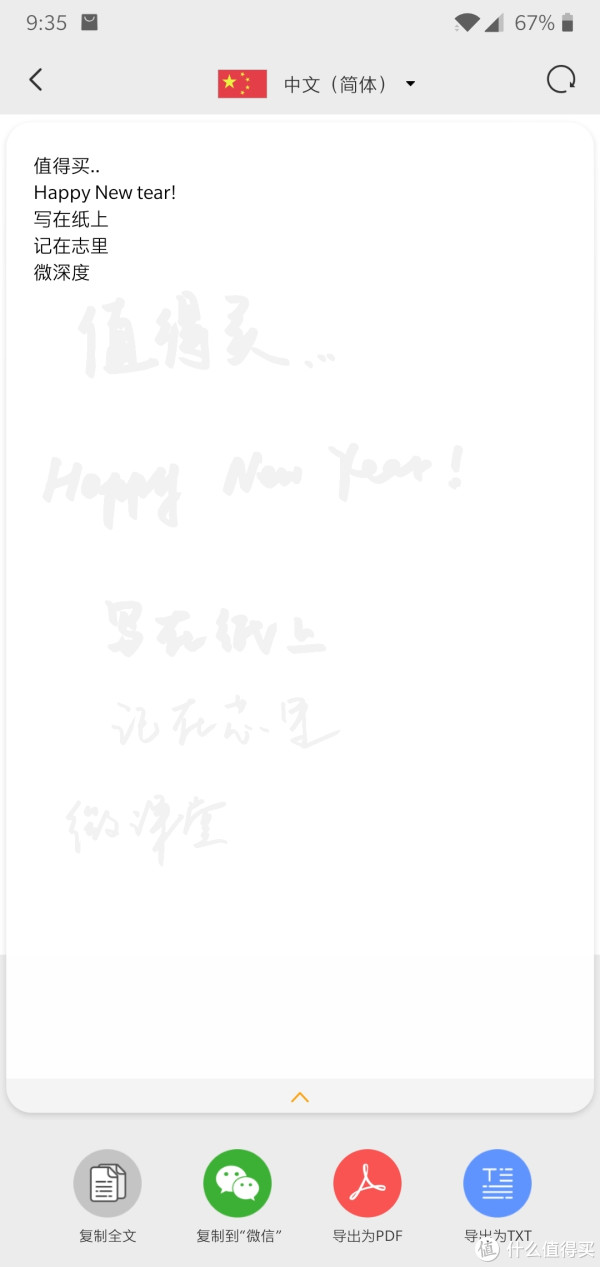 9:35 67%
中文（简体）
值得买..
Happy New tear!
写在纸上
记在志里
微深度
值得买...
Happy New Year!
写在纸上
记在志里
微课堂
复制全文 复制到“微信” 导出为PDF 导出为TXT
值 什么值得买